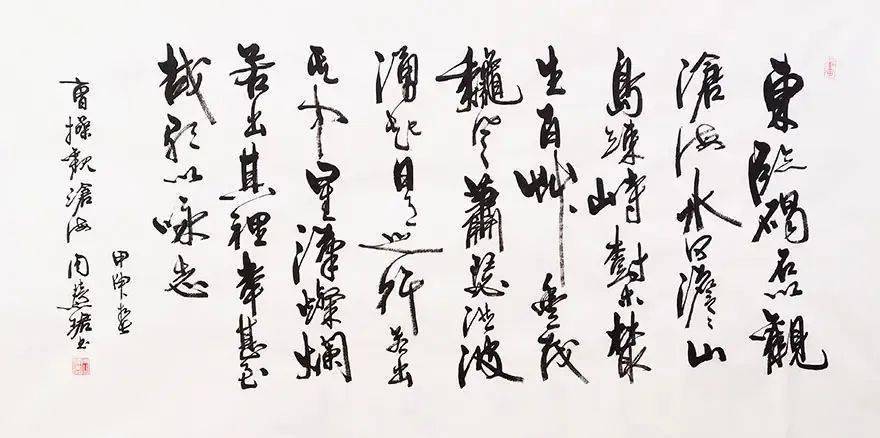 東臨碣石以觀
滄海水何澹々山
島竦峙樹木叢
生百艸豐茂
龝風蕭瑟洪波
湧起日月之行若出
其中星漢燦爛
若出其裡幸甚至
哉歌以咏志
甲申
曹操觀滄海周慧珺書